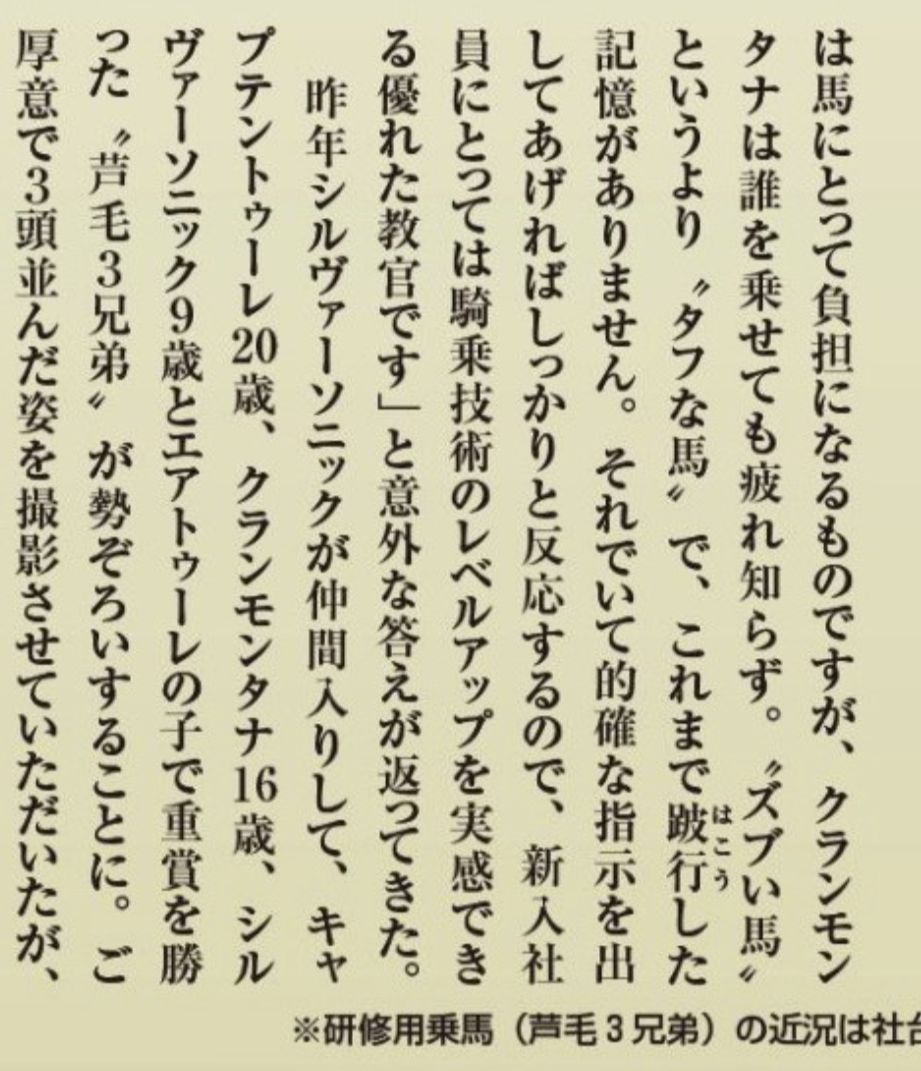 は馬にとって負担になるものですが、クランモン
タナは誰を乗せても疲れ知らず。〝ズブい馬〟
というより〝タフな馬〟で、これまで跛行した
はこう
記憶がありません。それでいて的確な指示を出
してあげればしっかりと反応するので、新入社
員にとっては騎乗技術のレベルアップを実感でき
る優れた教官です」と意外な答えが返ってきた。
昨年シルヴァーソニックが仲間入りして、キャ
プテントゥーレ20歳、クランモンタナ16歳、シル
ヴァーソニック9歳とエアトゥーレの子で重賞を勝
った〝芦毛3兄弟〟が勢ぞろいすることに。ご
厚意で3頭並んだ姿を撮影させていただいたが、
※研修用乗馬（芦毛3兄弟）の近況は社台